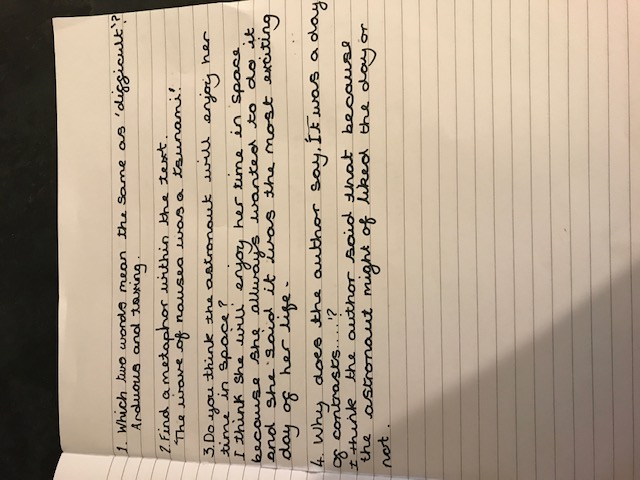 1. Which two words mean the same as 'difficult'?
Arduous and taxing.
2. Find a metaphor within the text.
'The wave of nausea was a tsunami'.
3. Do you think the astronaut will enjoy her
time in space?
I think she will enjoy her time in space
because she allways wanted to do it
and she said it was the most exciting
day of her life.
4. Why does the author say, 'It was a day
of contrasts....'?
I think the author said that because
the astronaut might of liked the day or
not.